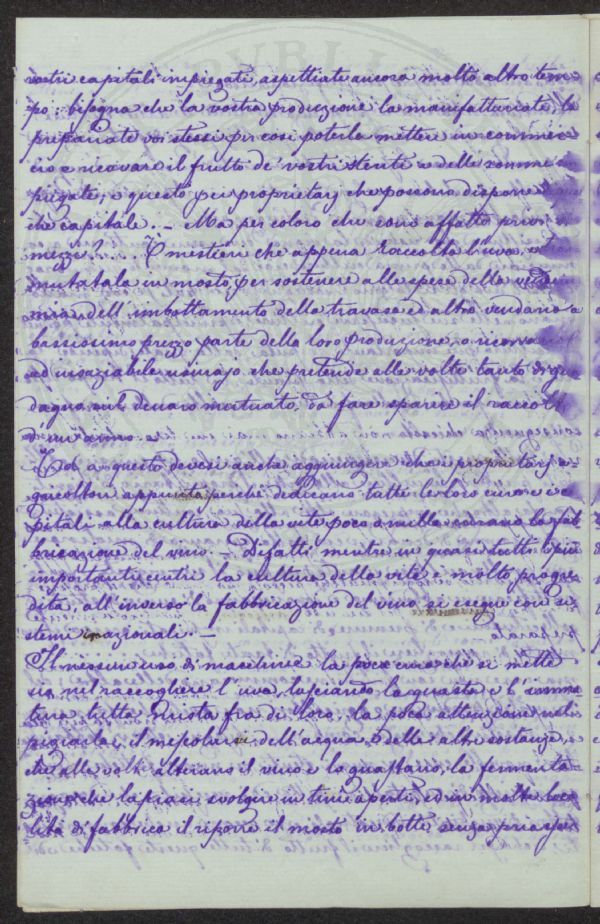 vostri capitali impiegati, aspettiate ancora molto altro tem-
po: bisogna che la vostra produzione la manifatturiate, la
prepariate voi stessi per così poterla mettere in commer-
cio e ricavare il frutto de' vostri stenti e delle somme im-
piegate, e questo pei proprietarj che possono disporre
che capitale. - Ma per coloro che sono affatto privi di
mezzi?.... È mestieri che appena raccolta l'uva, e
mutatala in mosto, per sostenere alle spese della vendem-
mia, dell'imbottamento della travasa ed altro vendano a
bassissimo prezzo parte della loro produzione, o ricorrano
ad insaziabile usurajo che pretende alle volte tanto di gua-
dagno sul denaro mutuato, da fare sparire il raccolto
di un anno.
Ed a questo devesi anche aggiungere che i proprietarj a-
gricoltori appunto perchè dedicano tutte le loro cure e i ca-
pitali alla cultura della vite poco o nulla curano la fab-
bricazione del vino. - Difatti mentre in quasi tutti i più
importanti centri la cultura della vite è molto progre-
dita, all'inverso la fabbricazione del vino si esegue con si-
stemi irrazionali. -
Il nessun uso di macchine la poca cura che si mette
sia nel raccogliere l'uva, lasciando la guasta e l'imma-
tura tutta mista fra di loro, la poca attenzione nel
pigiarla, il mescolare dell'acqua o delle altre sostanze,
che alle volte alterano il vino e lo guastano, la fermenta-
zione che lasciasi svolgere in tini aperti, ed in molte loca-
lità di fabbrica il riporre il mosto in botte senza pria